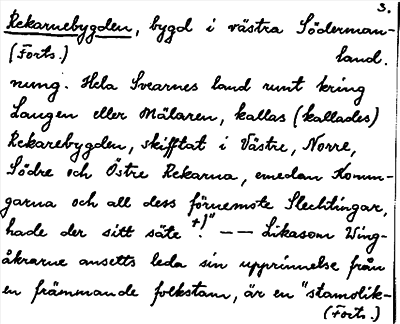 3.
Rekarnebygden, bygd i västra Söderman-
(Forts.) land.
nung. Hela Svearnes land runt kring
Laugen eller Mälaren, kallas (kallades)
Rekarebygden, skifftat i Västre, Norre,
Södre och Östre Rekarna, emedan Konun-
garna och all dess förnemste Slechtingar,
hade der sitt säte +)". —— Likasom Wing-
åkrarne ansetts leda sin upprinnelse från
en främmande folkstam, är en "stamolik-
(Forts.)